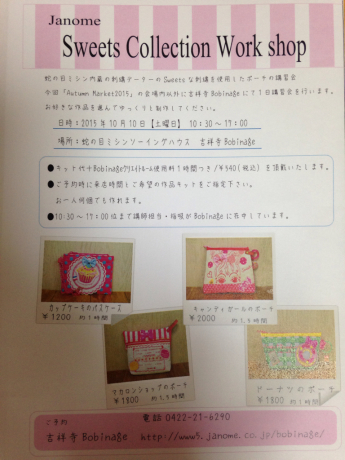 Janome
Sweets Collection Work shop
蛇の目ミシン内蔵の刺繍データーのSweetsな刺繍を使用したポーチの講習会
今回「Autumn Market2015」の会場内以外に吉祥寺Bobinageにて1日講習会を行います。
お好きな作品を選んでゆっくりと制作してください。
日時:2015年10月10日【土曜日】 10:30～17:00
場所:蛇の目ミシンソーイングハウス 吉祥寺Bobinage
●キット代+Bobinageクリエイトルーム使用料1時間につき/¥540(税込)を頂戴いたします。
●ご予約時に来店時間とご希望の作品キットをご指定下さい。
お一人何個でも作れます。
●10:30～17:00位まで講師担当・稲垣がBobinageに在中しています。
カップケーキのパスケース
¥1200 約1時間
キャンディガールのポーチ
¥2000 約1.5時間
マカロンショップのポーチ
¥1800 約1.5時間
ドーナツのポーチ
¥1800 約1時間
ご予約
電話 0422-21-6290
吉祥寺Bobinage http://www5.janome.co.jp/bobinage/